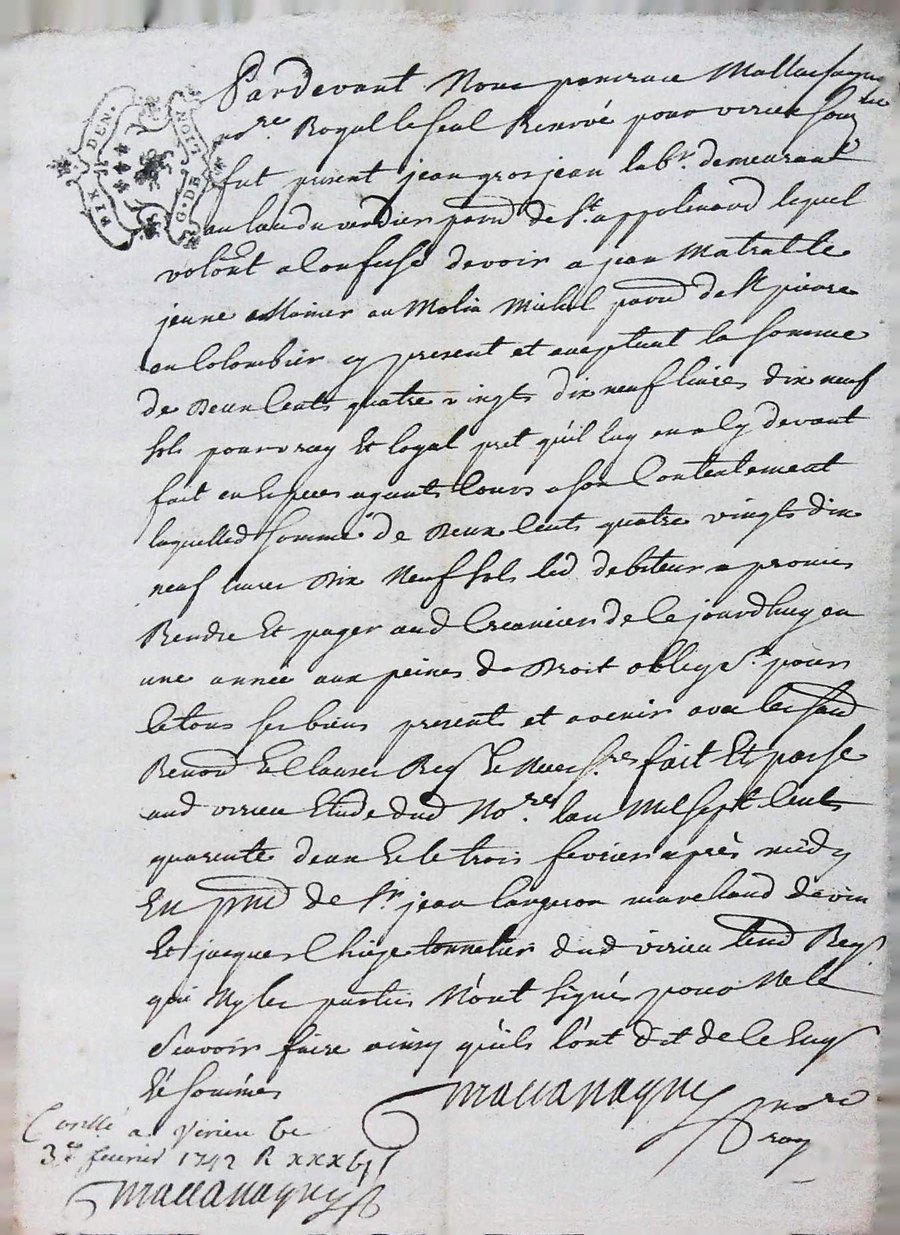 SIX DEN.
G. DE LION
Pardevant Nous pancrace Mallassagny
no.re Royal le seul Reservé pour virieu souz.né
fut present jean grosjean lab.r demeurant
au lieu du verdier parr.e de St. appolinard lequel
volon.t a Confessé devoir a jean Matrat le
jeune Monier au Molin Michel parr.e de St pierre
en Colombier cy present et aceptant la somme
de Deux Cents quatre vingts dix neuf livres dix neuf
sols pour vray Et loyal pret qu'il luy en a Cy devant
fait en Especes ayants Cours a son Contentement
laquelled. somme de Deux Cents quatre vingts dix
neuf livres Dix Neuf sols led. debiteur a promis
Rendre Et payer aud. Creancier de Ce jourdhuy en
une année aux peines de Droit oblig.t pour
Ce tous ses biens present et avenir avec les
Renon.s Et Clauses Req. Et Necess.res fait Et passé
aud. virieu Etude dud. No.re lan Mil sept Cents
quarente deux Et le trois fevrier après midy
En pnce de Sr. jean langeron marchand de vin
Et jacques tonnetier dud. virieu Req.
qui Ny les parties N'ont signé pour Ne le
sçavoir faire ainsy qu'ils l'ont dit de Ce Enq.
Et sommés
Mallassagny no.re
roy.
Conllé a Virieu le
3.e fevrier 1742 R
Mallassagny